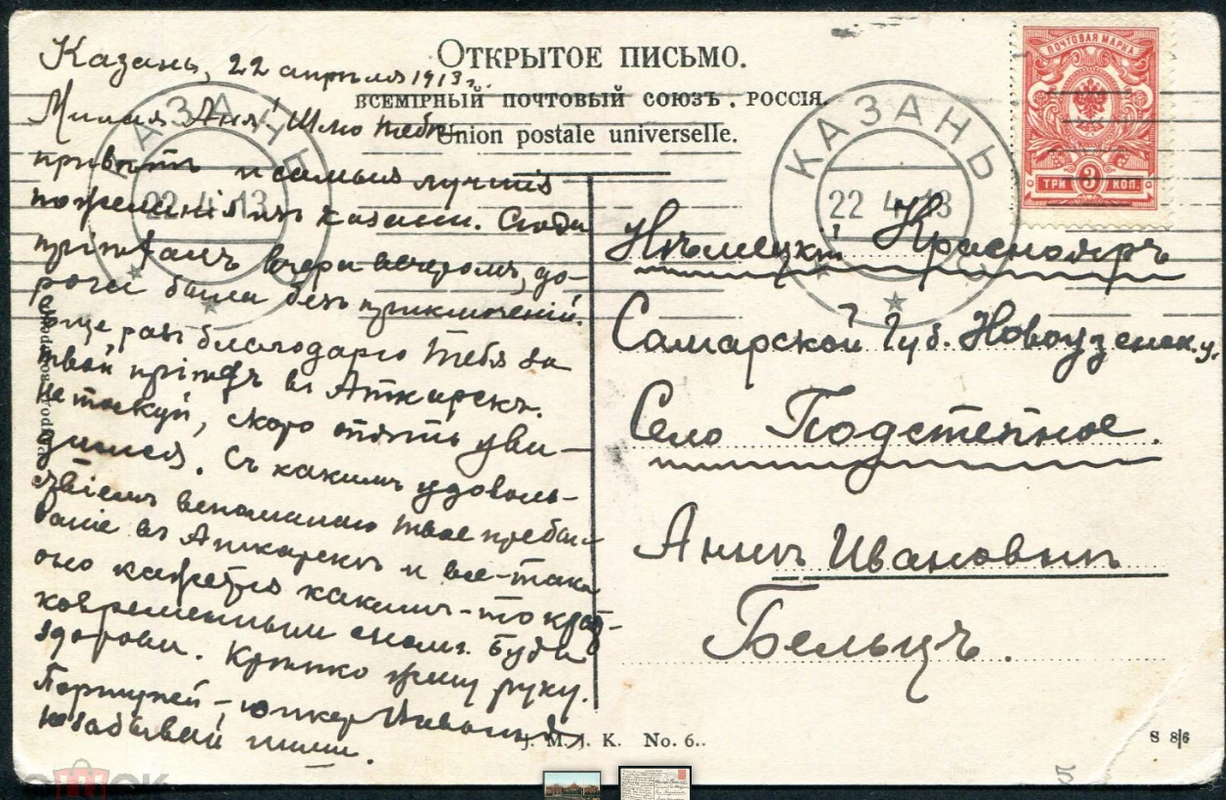 Казань, 22 апреля 1913 г.
Милая Аня! Шлю тебѣ
привѣтъ и самыя лучшія
пожеланія изъ Казани. Сюда
пріѣхалъ вчера вечеромъ, до-
рога была безъ приключеній.
Еще разъ благодарю тебя за
твой пріѣздъ въ Аткарскъ.
Не тоскуй, скоро опять уви-
димся. Съ какимъ удоволь-
ствіемъ вспоминаю твое пребы-
ваніе въ Аткарскѣ и все-таки
оно кажется какимъ-то крат-
ковременнымъ сномъ. Будь
здорова. Крѣпко жму руку.
Портупей-юнкер
Не забывай пиши.
ОТКРЫТОЕ ПИСЬМО.
ВСЕМІРНЫЙ ПОЧТОВЫЙ СОЮЗЪ. РОССІЯ.
Union postale universelle.
КАЗАНЬ
22 4 13
КАЗАНЬ
22 4 13
ПОЧТОВАЯ МАРКА
ТРИ 3 КОП.
Нѣмецкій Краснояръ
Самарской Губ. Новоузенск. у.
Село Подстепное.
Аннѣ Ивановнѣ
Бельцъ.
J. M. J. K. No. 6..
S 8/6